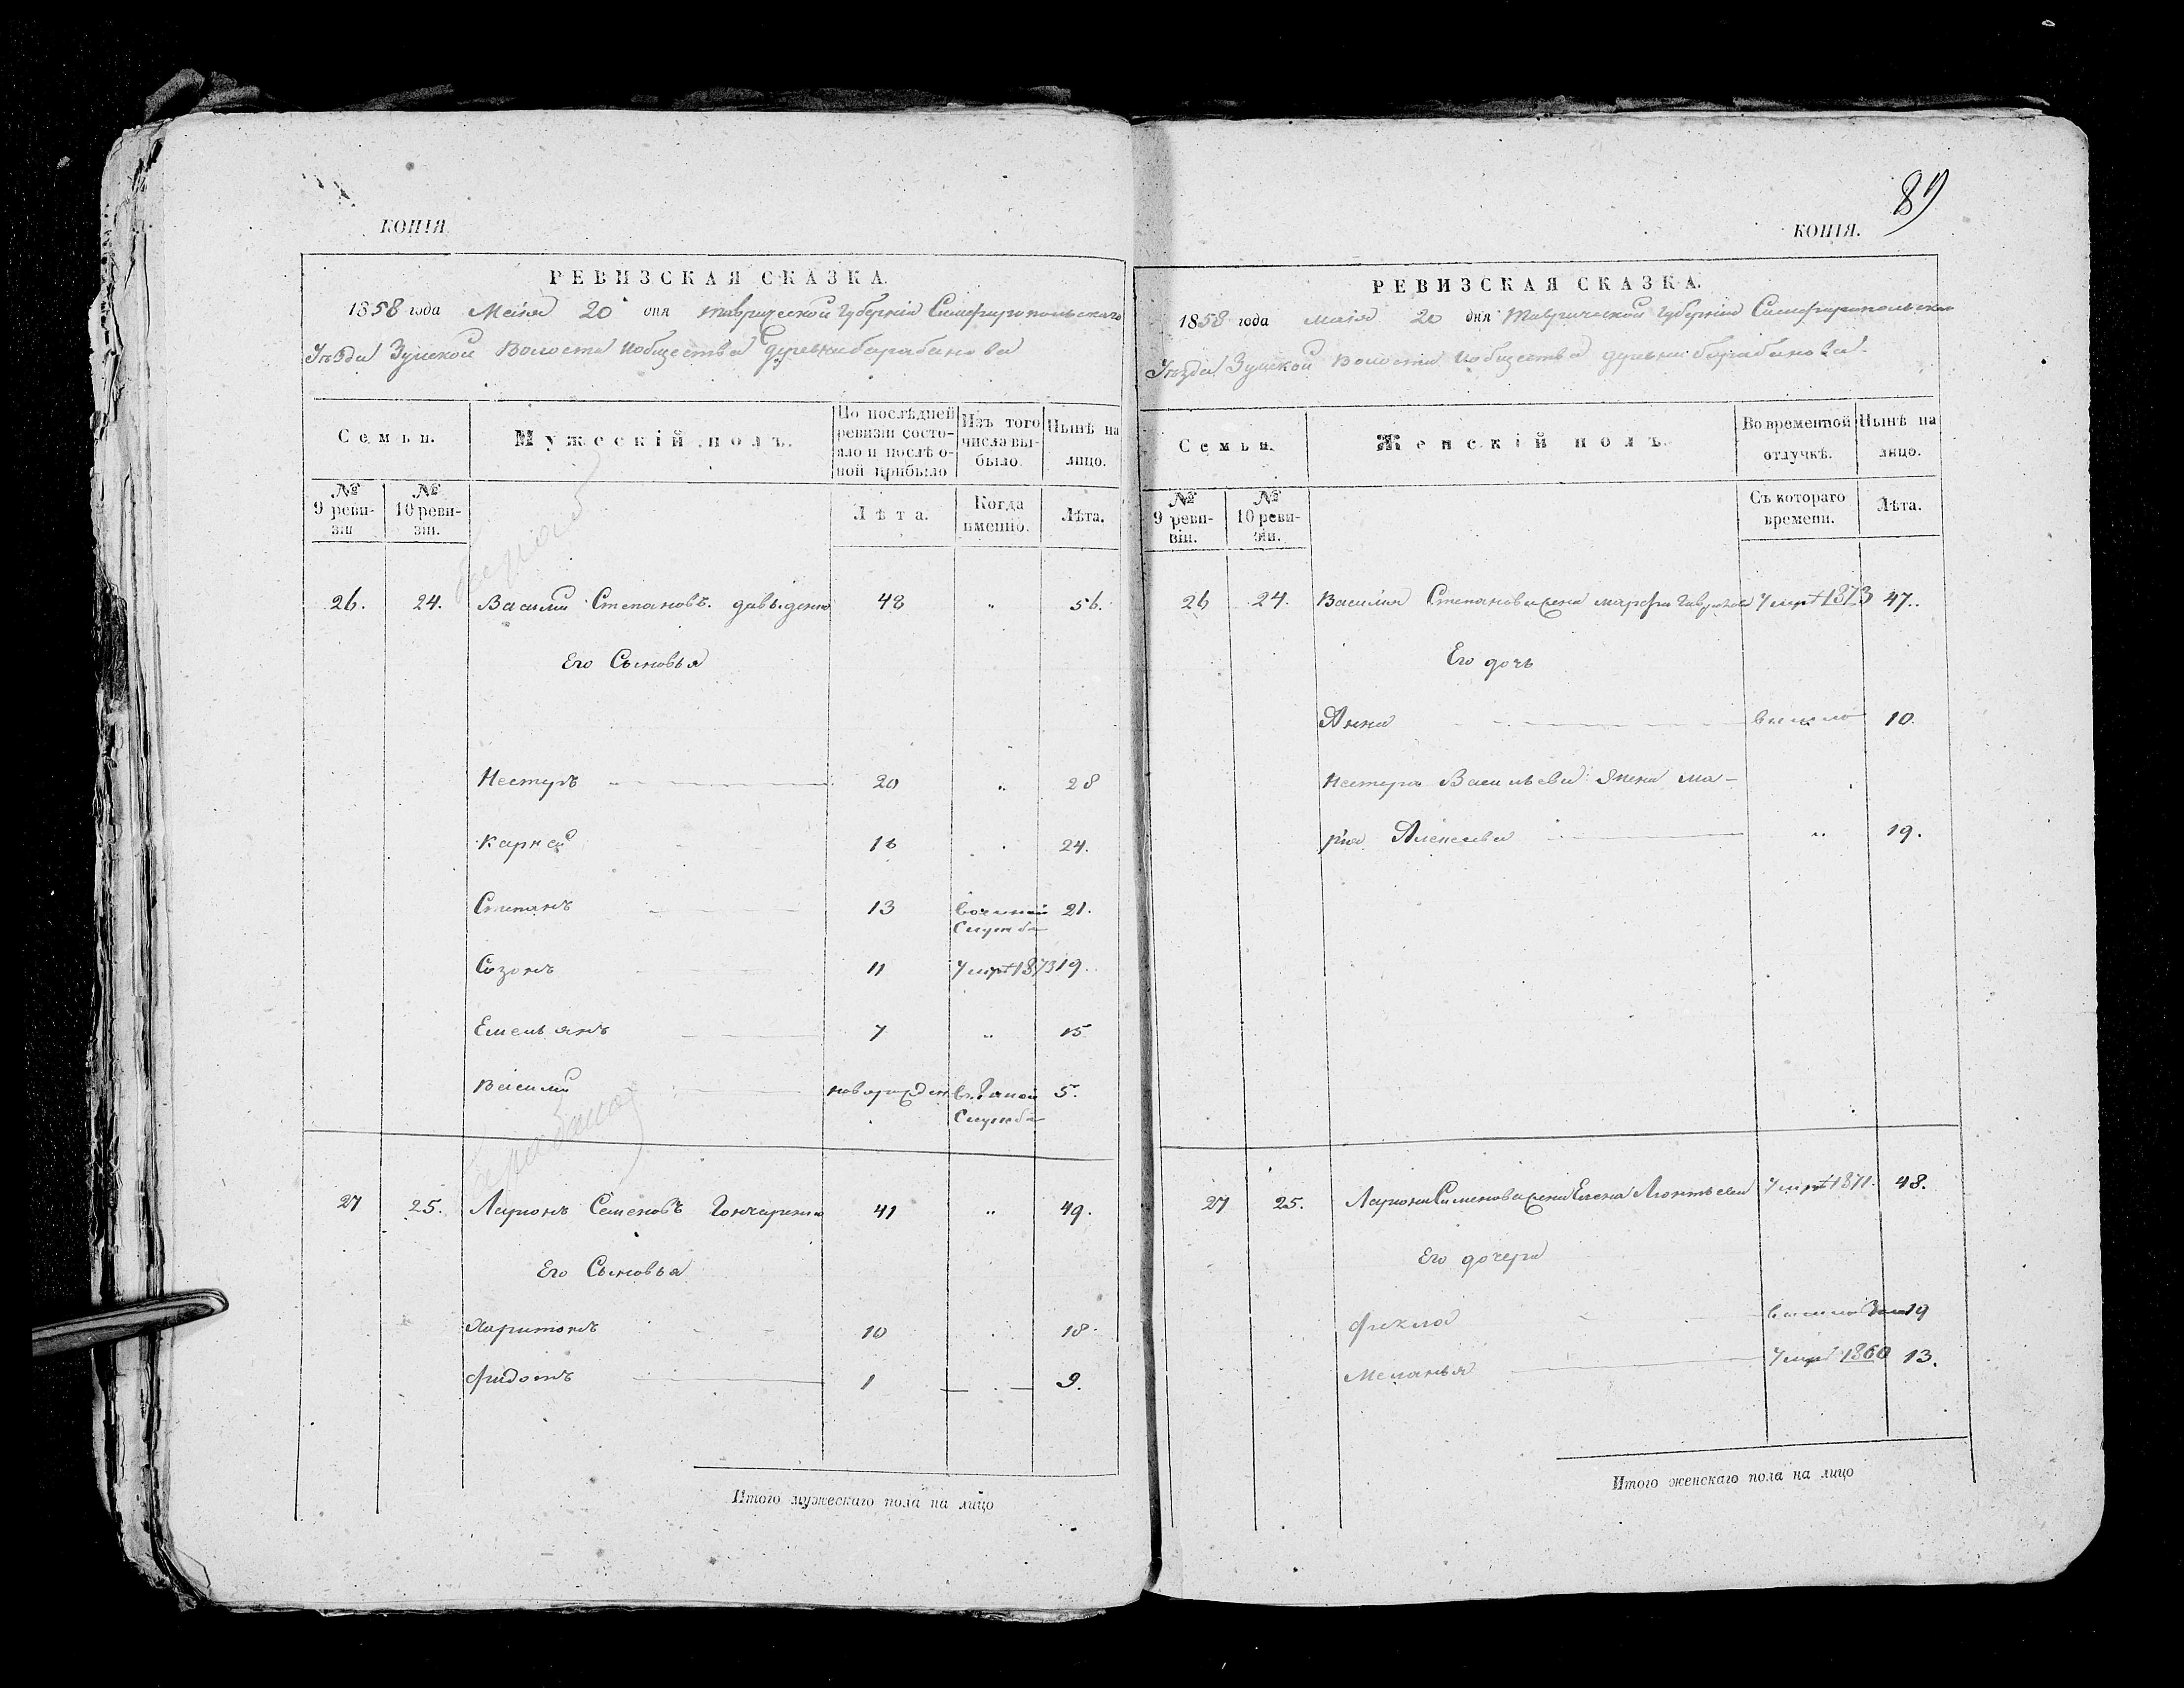 КОПІЯ
РЕВИЗСКАЯ СКАЗКА.
1858 года Маія 20 дня Таврической Губерніи Симферопольскаго
Уѣзда Зуйской Волости и общества деревни барабанова
Семьи.
Мужескій полъ.
По послѣдней ревизіи состояло и послѣ оной прибыло
Изъ того числа выбыло
Нынѣ на лицо.
№ 9 ревизіи
№ 10 ревизіи.
Лѣта.
Когда именно.
Лѣта.
26. 24. Василій Степановъ. давыденко 48 „ 56.
Его Сыновья
Нестуръ 20 „ 28
Карнѣй 16 . 24.
Степанъ 13 21.
Службѣ
Созонъ 11 Умръ 1873 19.
Емельянъ 7 „ 15
Василій новорожден. 5.
Службѣ
27 25. Ларионъ Семеновъ Гончаренко 41 „ 49.
Его Сыновья
Харитонъ 10 . 18.
Фидотъ 1 . 9.
Итого мужескаго пола на лицо
89
КОПІЯ.
РЕВИЗСКАЯ СКАЗКА.
1858 года маія 20 дня Таврической Губерніи Симферопольскаго
Уѣзда Зуйской Волости и общества деревни барабанова.
Семьи.
Женскій полъ.
Во временной отлучкѣ.
Нынѣ на лицо.
№ 9 ревизіи.
№ 10 ревизіи.
Съ котораго времени.
Лѣта.
26 24. Василия Степанова жена марфа Гаврилова Умр 1873 47.
Его дочь
Анна вышла 10.
Нестура Васильева жена Ма-
рия Алексеева „ 19.
27 25. Лариона Сименова жена Елена Леонтьева Умр 1871. 48.
Его дочери
Фекла вышла Зам 19
Меланья Умр 1860 13.
Итого женскаго пола на лицо